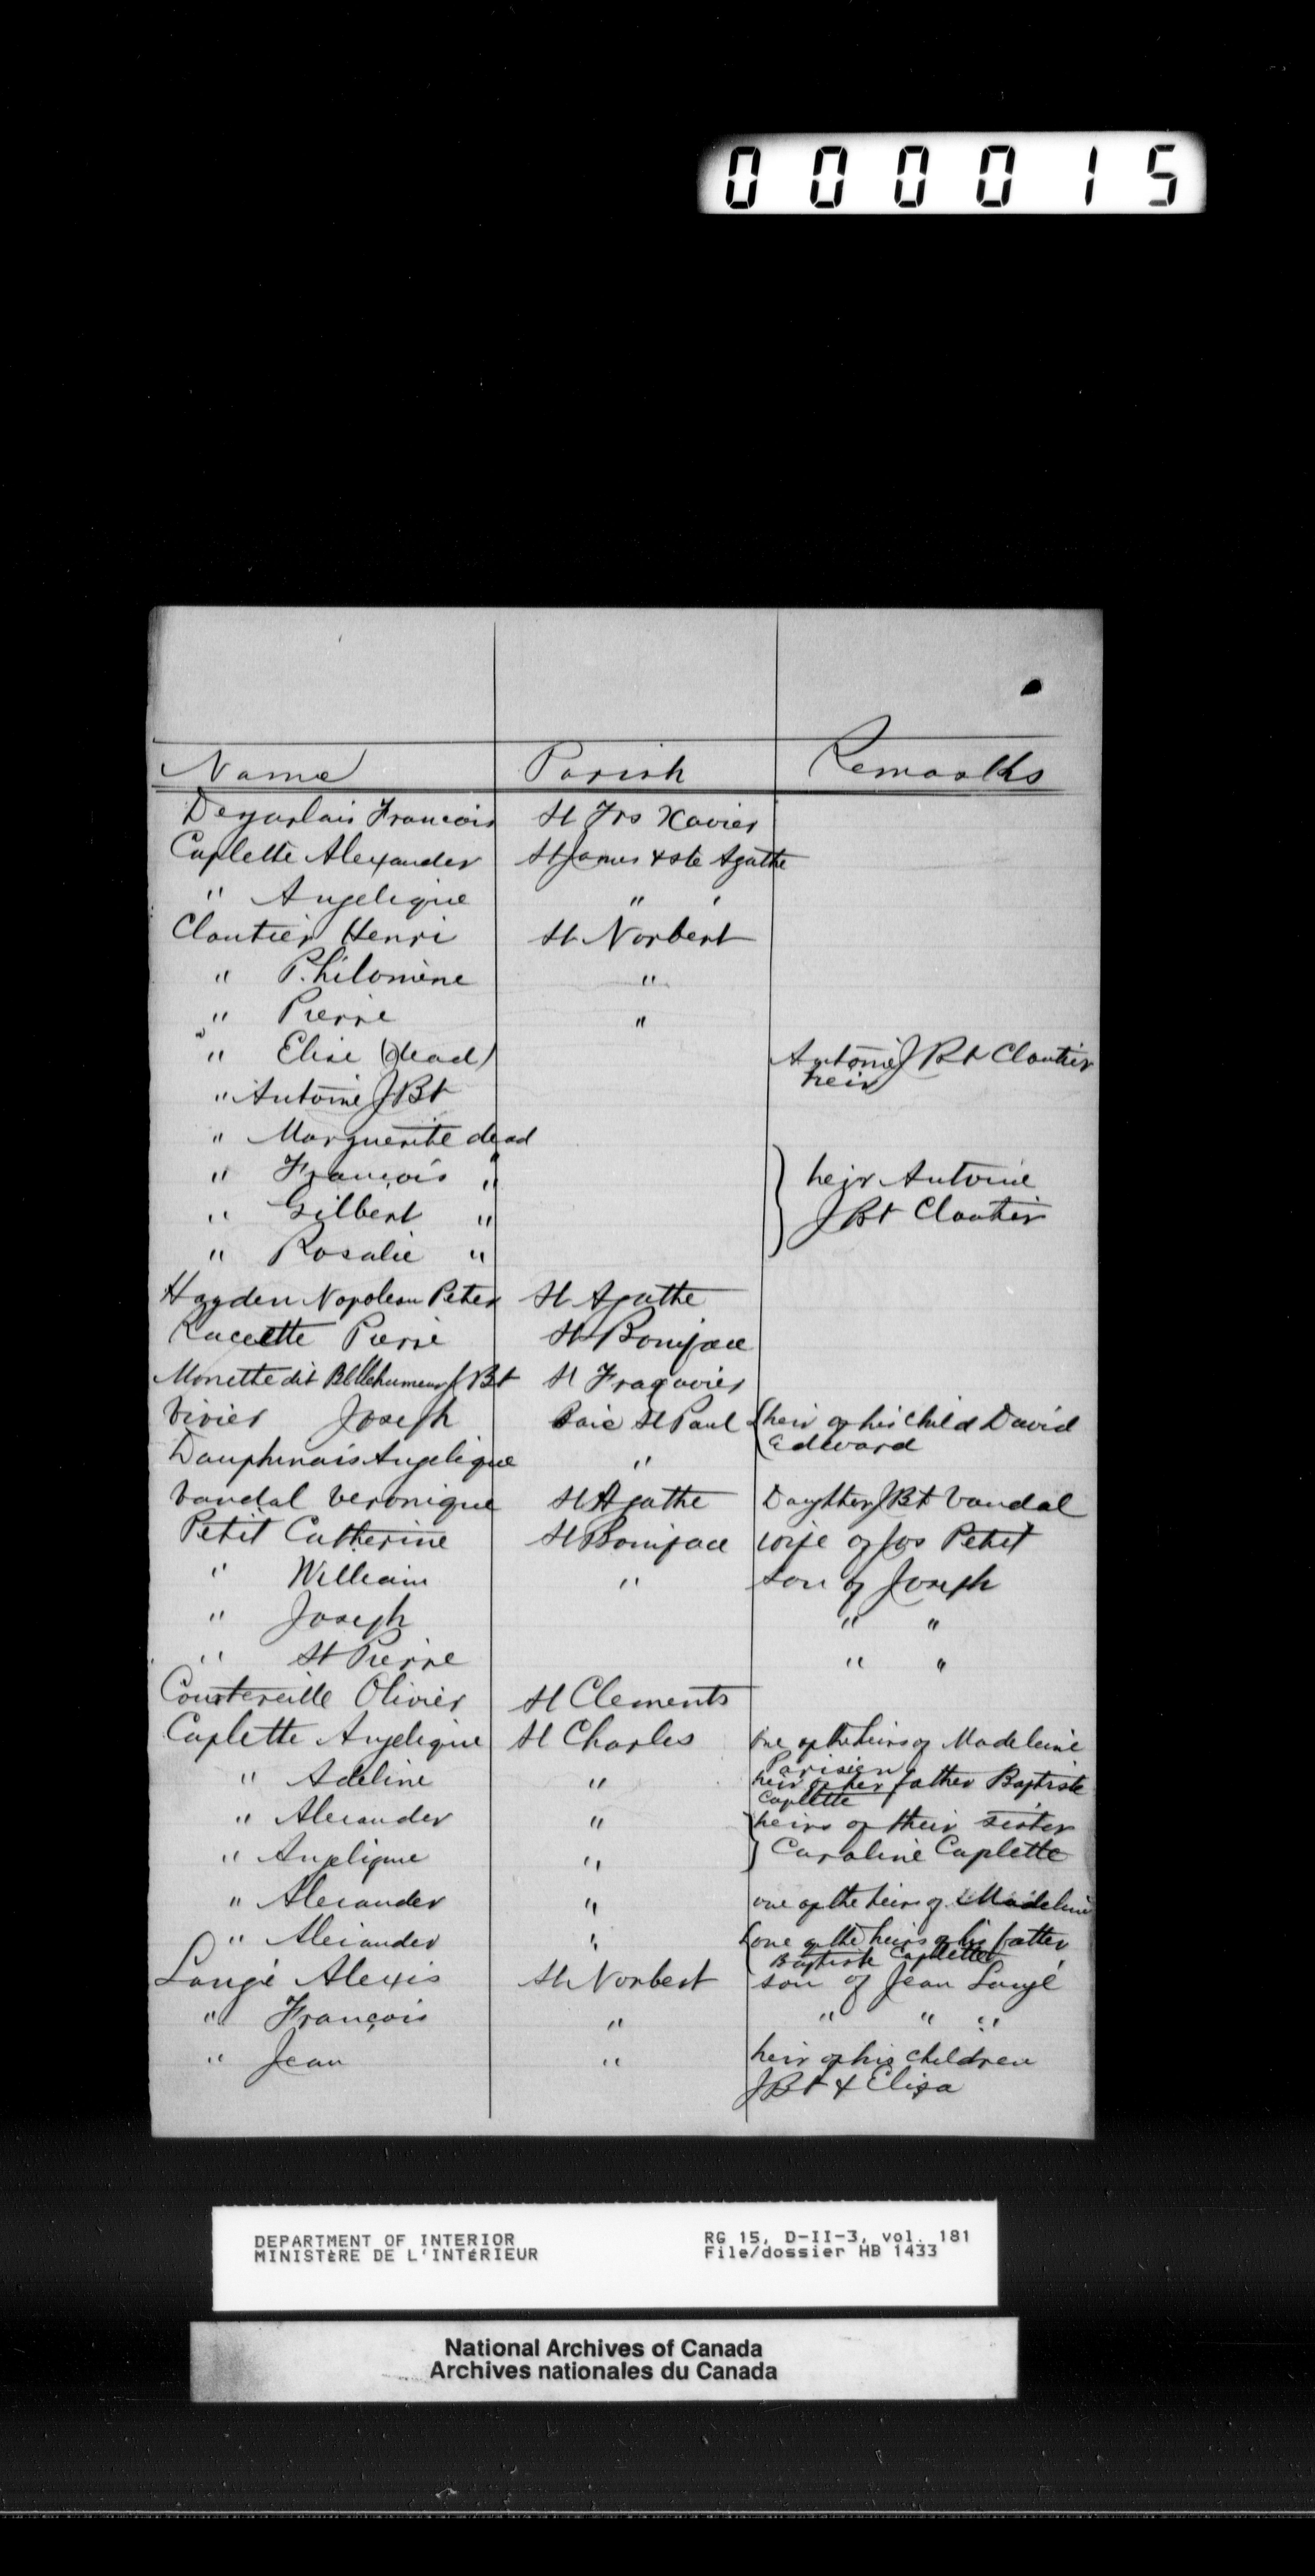 000015
Name Parish Remarks
Dejarlais Francois St Frs Xavier
Caplette Alexander St James & ste Agathe
" Angelique " "
Cloutier Henri St Norbert
" Philomène "
" Pierre "
" Elise (dead) Antoine J Bt Cloutier
heir
" Antoine J Bt
" Marguerite dead
" François " heir Antoine
" Gilbert " J Bt Cloutier
" Rosalie "
Hayden Napoleon Peter St Agathe
Racette Pierre St Boniface
Monette dit Bellehumeur J Bt St
Vivier Joseph Baie St Paul heir of his child David
Edward
Dauphinais Angelique "
Vandal Veronique St Agathe Daughter J Bt Vandal
Petit Catherine St Boniface wife of Jos Petit
" William " son of Joseph
" Joseph " "
" St Pierre " "
Courtereille Olivier St Clements
Caplette Angelique St Charles one of the heirs of Madeleine
Parisien
" Adeline " heir of her father Baptiste
Caplette
" Alexander " heirs of their sister
" Angelique " Caroline Caplette
" Alexander " one of the heirs of Madeline
" Alexander " one of the heirs of his father
Baptiste Caplette
Laugé Alexis St Norbert son of Jean Laugé
" François " " " "
" Jean " heir of his children
J Bt & Elisa
DEPARTMENT OF INTERIOR RG 15, D-II-3, vol. 181
MINISTÈRE DE L'INTÉRIEUR File/dossier HB 1433
National Archives of Canada
Archives nationales du Canada